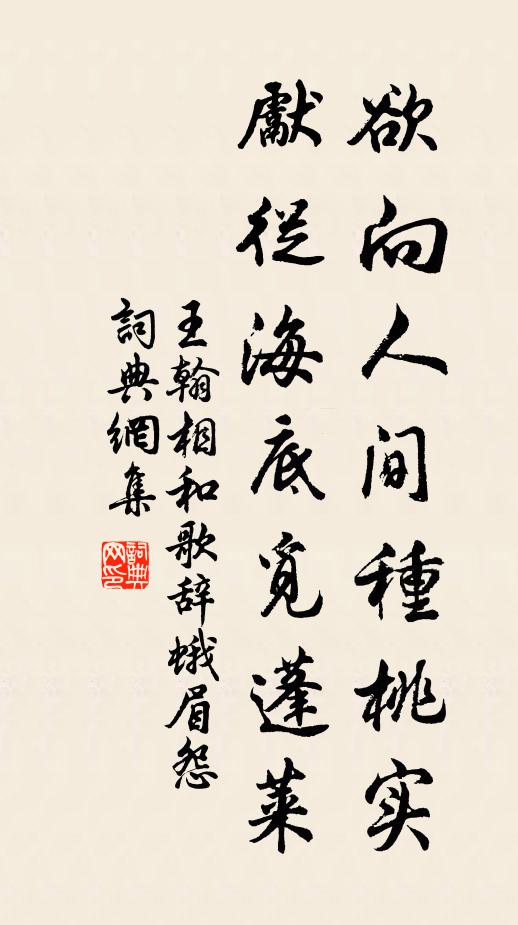 欲向人間種桃实
獻從海底覓蓬萊
王翰相和歌辞蛾眉怨
詞典網集
詞典
网印